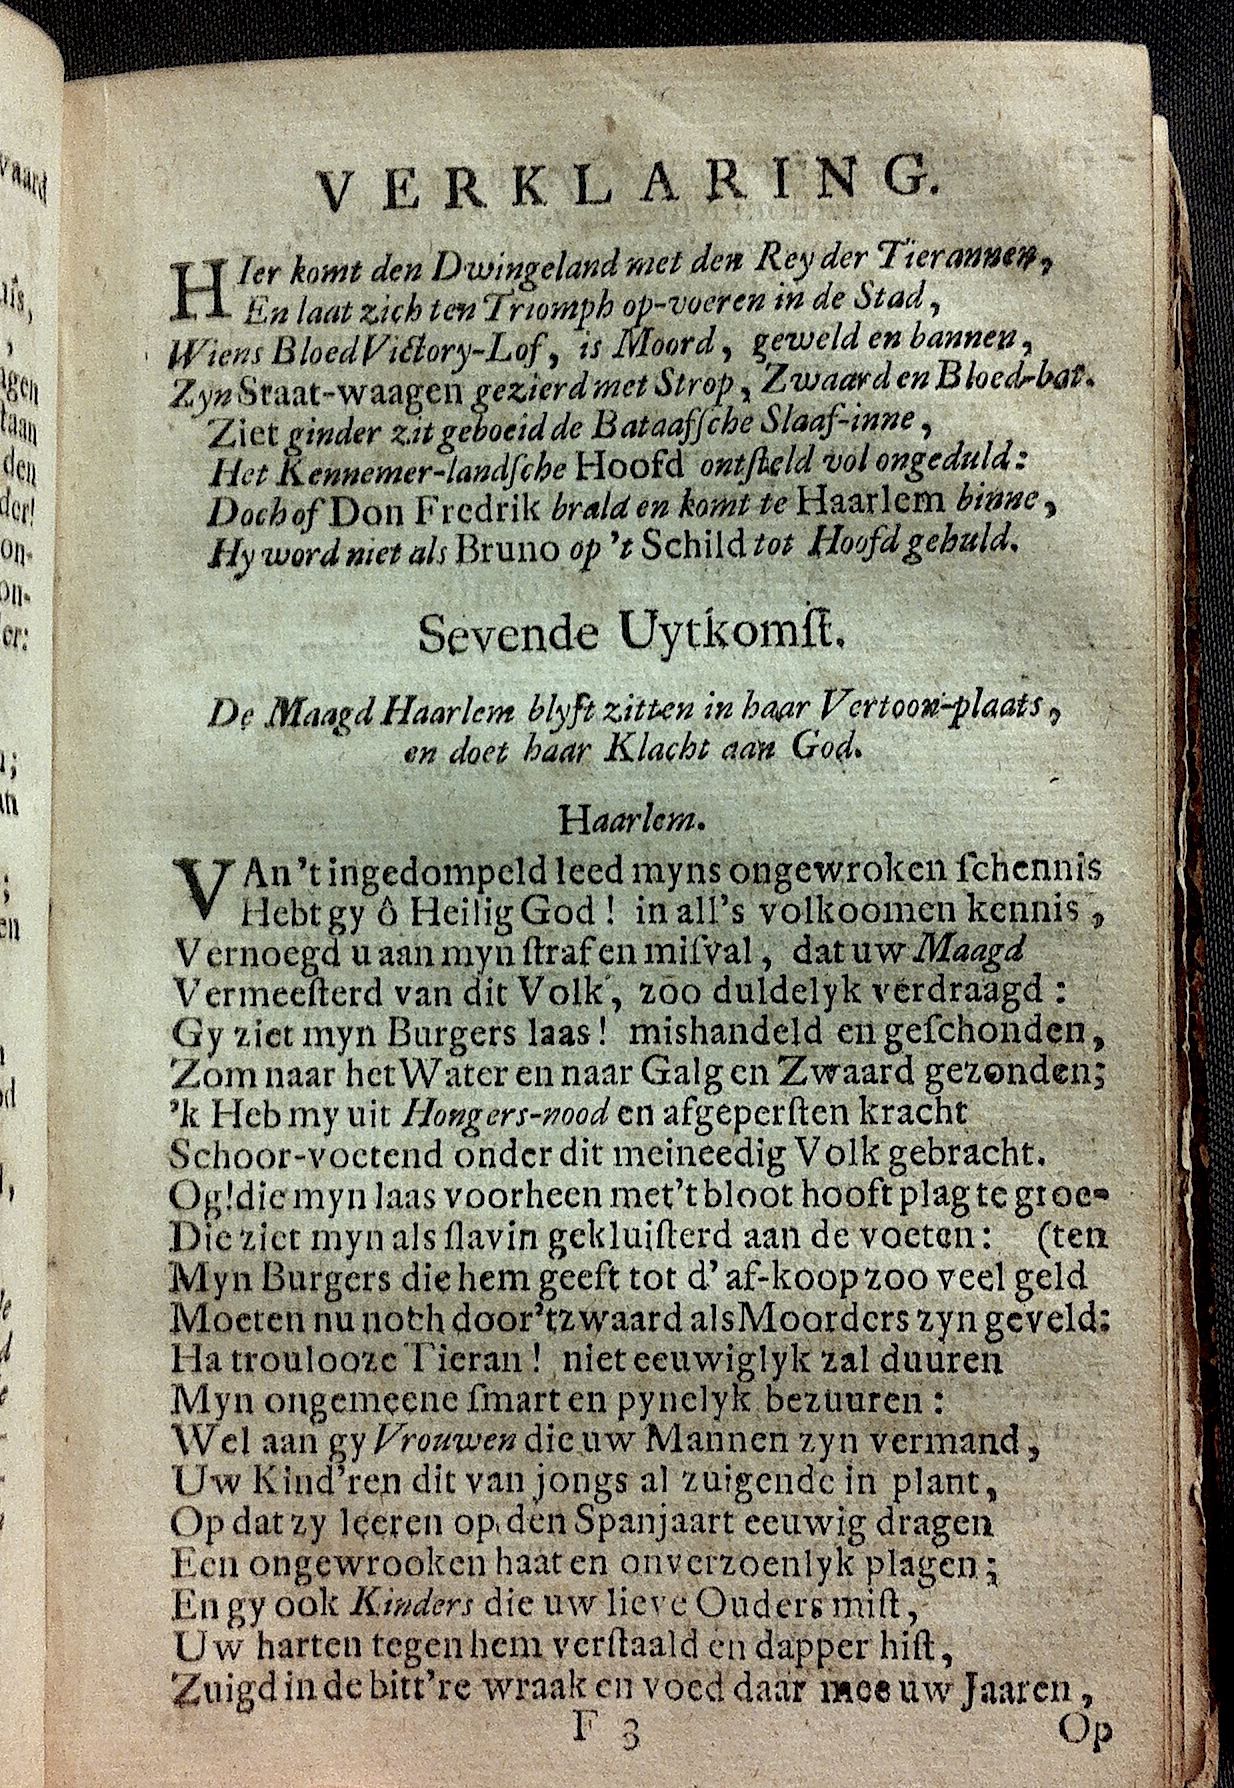 VERKLARING.
HIer komt den Dwingeland met den Rey der Tierannen,
En laat zich ten Triomph op-voeren in de Stad,
Wiens Bloed Victory-Lof, is Moord, geweld en bannen,
Zyn Staat-waagen gezierd met Strop, Zwaard en Bloed-bat.
Ziet ginder zit geboeid de Bataafſche Slaaf-inne,
Het Kennemer-landſche Hoofd ontſteld vol ongeduld:
Doch of Don Fredrik brald en komt te Haarlem binne,
Hy word niet als Bruno op 't Schild tot Hoofd gehuld.
Sevende Uytkomſt.
De Maagd Haarlem blyft zitten in haar Vertoon-plaats,
en doet haar Klacht aan God.
Haarlem.
VAn 't ingedompeld leed myns ongewroken ſchennis
Hebt gy ô Heilig God! in all's volkoomen kennis,
Vernoegd u aan myn ſtraf en miſval, dat uw Maagd
Vermeeſterd van dit Volk, zoo duldelyk verdraagd:
Gy ziet myn Burgers laas! mishandeld en geſchonden,
Zom naar het Water en naar Galg en Zwaard gezonden;
'k Heb my uit Hongers-nood en afgeperſten kracht
Schoor-voetend onder dit meineedig Volk gebracht.
Og! die myn laas voorheen met 't bloot hooft plag te groe-
Die ziet myn als ſlavin gekluiſterd aan de voeten: (ten
Myn Burgers die hem geeft tot d' af-koop zoo veel geld
Moeten nu noch door 't zwaard als Moorders zyn geveld:
Ha troulooze Tieran! niet eeuwiglyk zal duuren
Myn ongemeene ſmart en pynelyk bezuuren:
Wel aan gy Vrouwen die uw Mannen zyn vermand,
Uw Kind'ren dit van jongs al zuigende in plant,
Op dat zy leeren op den Spanjaart eeuwig dragen
Een ongewrooken haat en onverzoenlyk plagen;
En gy ook Kinders die uw lieve Ouders miſt,
Uw harten tegen hem verſtaald en dapper hiſt,
Zuigd in de bitt're wraak en voed daar mee uw Jaaren,
F 3 Op